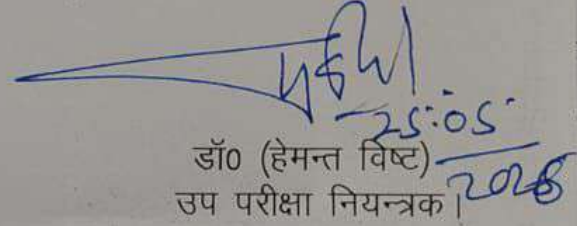 25.05.
2026
डॉ0 (हेमन्त विष्ट)
उप परीक्षा नियन्त्रक।